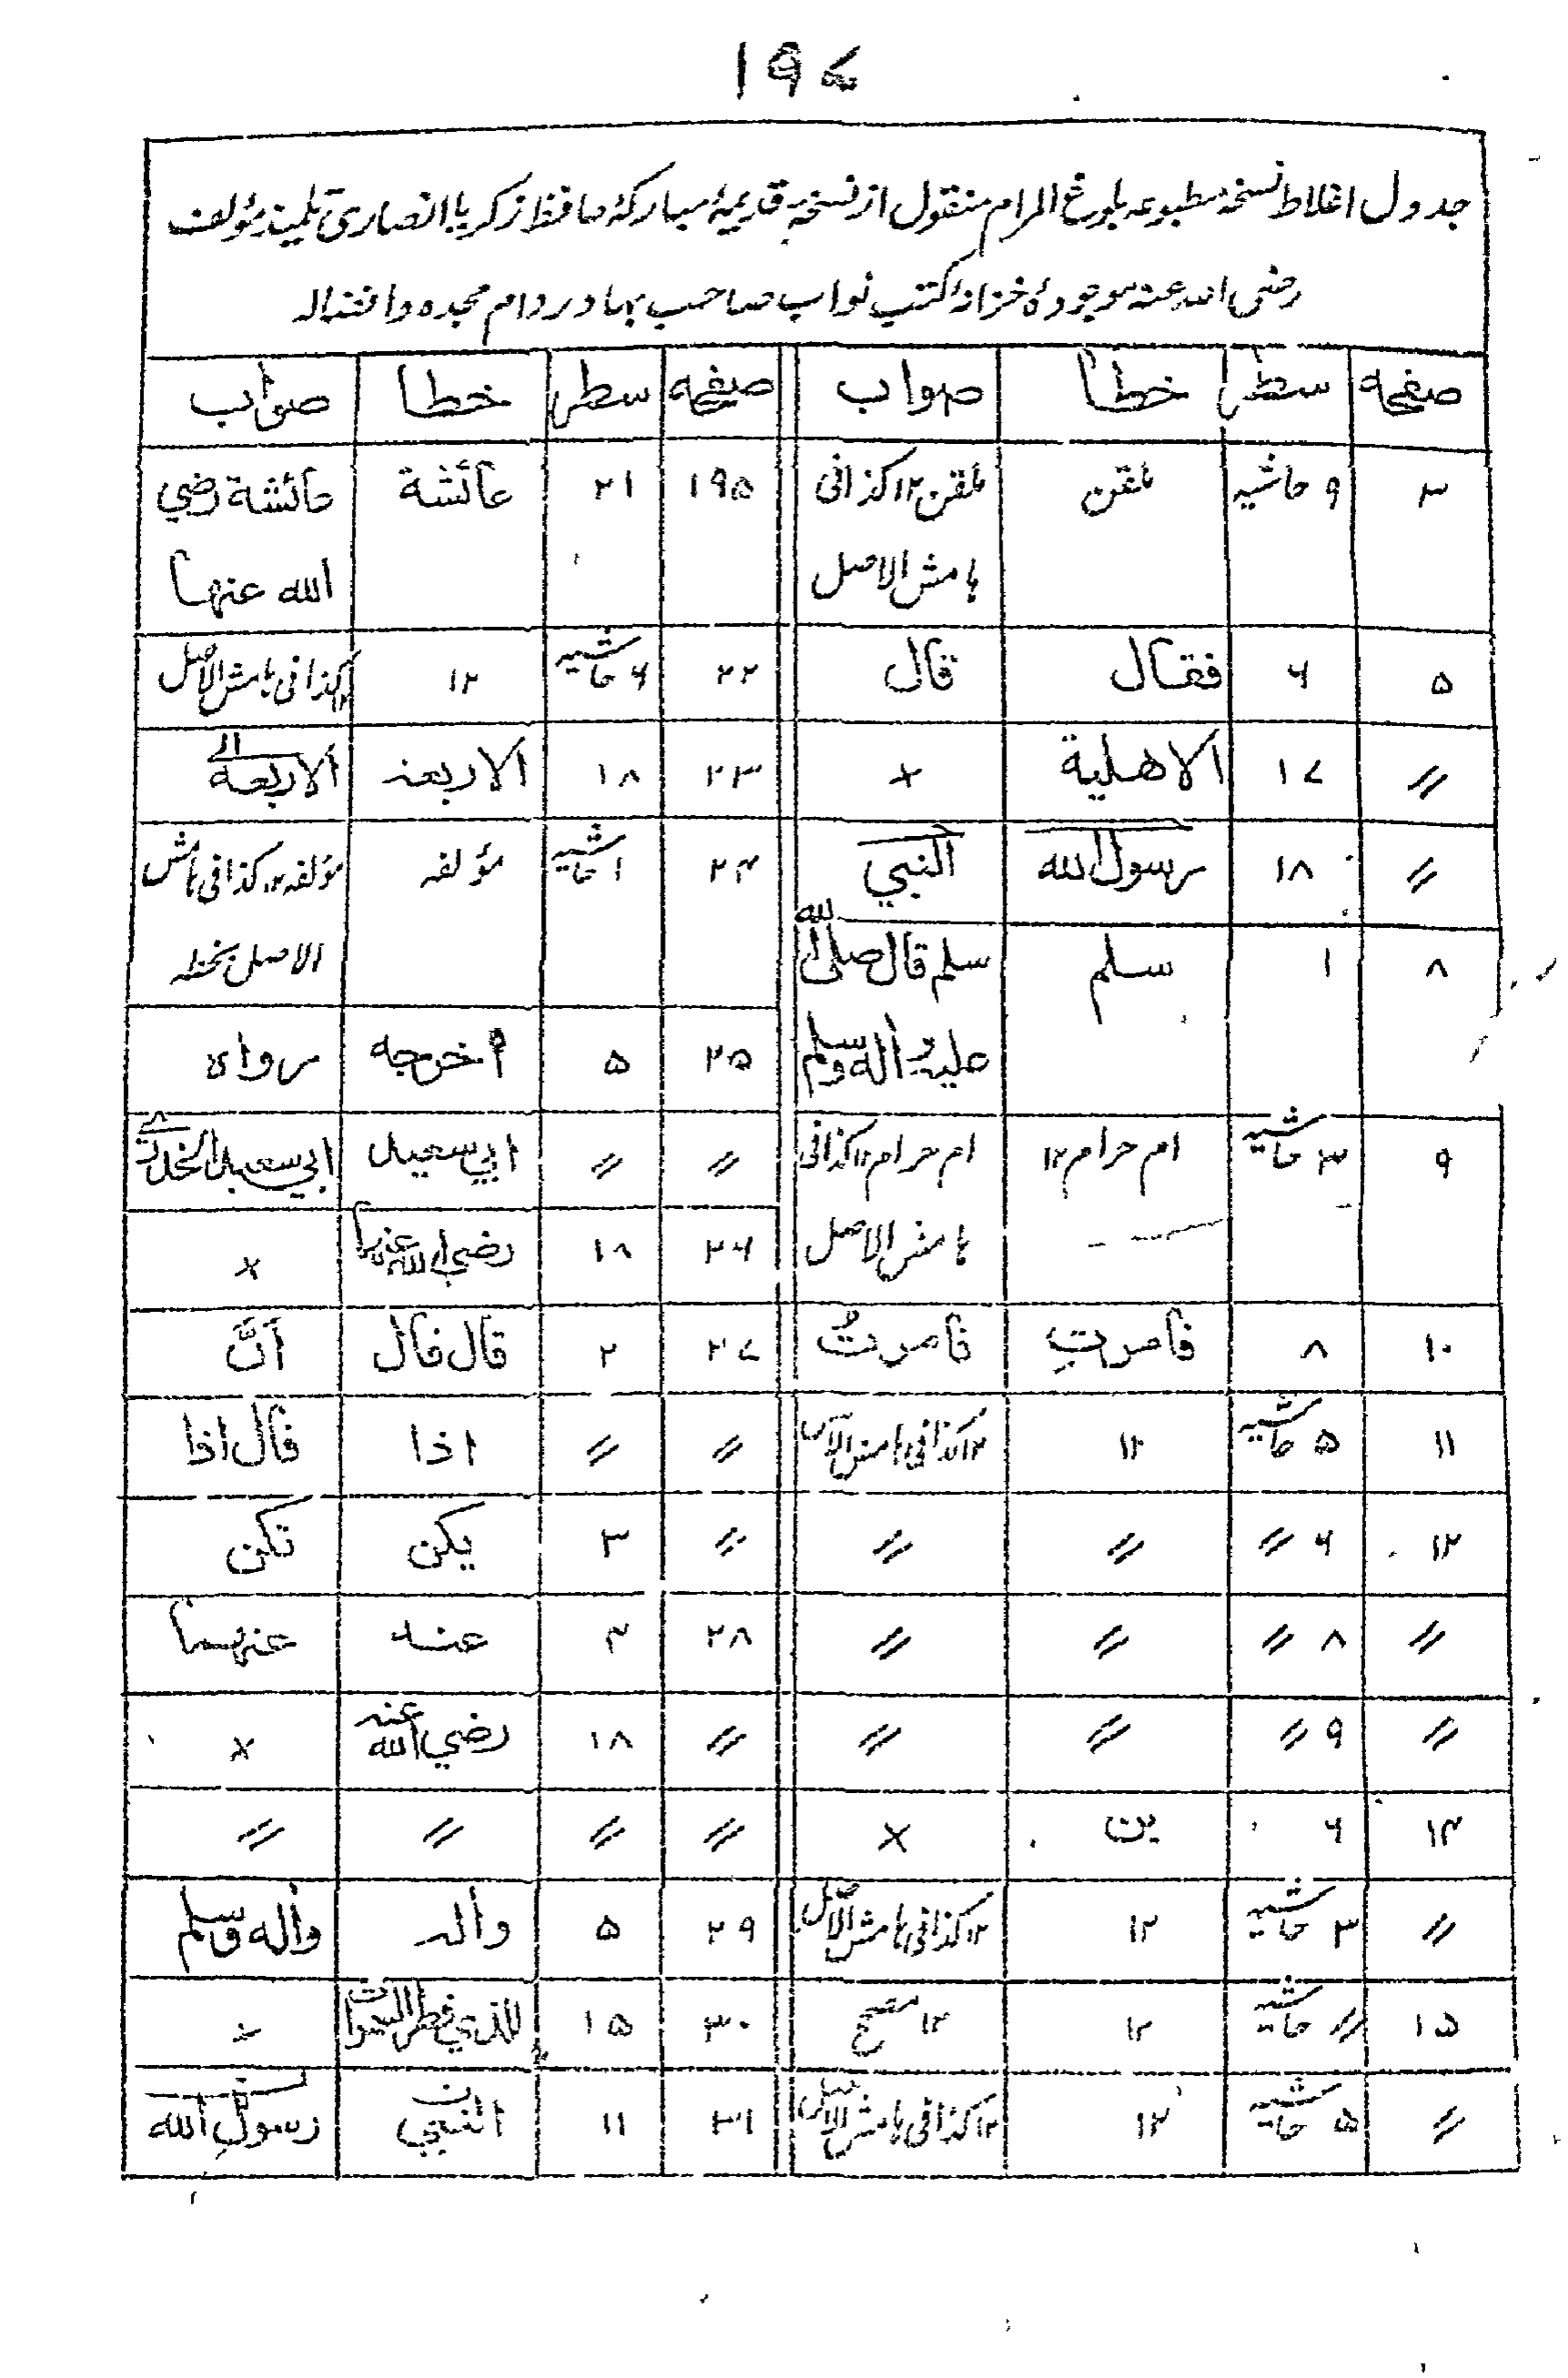 ۱۹۷
جدول اغلاط نسخهٔ مطبوعه بلوغ المرام منقول از نسخهٔ قدیمهٔ مبارکهٔ حافظ زکریا انصاری تلمیذ مؤلف
رضی الله عنه موجودهٔ خزانهٔ کتب نواب صاحب بهادر دام مجده واقباله
صفحه سطر خطأ صواب صفحه سطر خطا صواب
۳ ۹ حاشیه ملقن ملقن ۱۲ کذا فی ۱۹۵ ۲۱ عائشة عائشة رضي
هامش الاصل الله عنها
۵ ۶ فقال قال ۲۲ ۶ حاشیه ۱۲ ۱۲ کذا فی هامش الاصل
〃 ۱۷ الاهلية × ۲۳ ۱۸ الاربعة الاربعة
〃 ۱۸ رسول الله النبي ۲۴ ۱ حاشیه مؤلفه مؤلفه ۱۲ کذا فی هامش
الاصل بخطه
۸ ۱ سلم سلم قال صلى الله
عليه وآله وسلم ۲۵ ۵ أخرجه رواه
۹ ۳ حاشیه ام حرام ۱۲ ام حرام ۱۲ کذا فی 〃 〃 ابي سعيد ابي سعيد الخدري
هامش الاصل ۲۶ ۱۸ رضي الله عنها ×
۱۰ ۸ فامرتِ فامرتُ ۲۷ ۲ قال قال أنَّ
۱۱ ۵ حاشیه ۱۲ ۱۲ کذا فی هامش الاصل 〃 〃 اذا قال اذا
۱۲ ۶ 〃 〃 〃 〃 ۳ يكن تكن
〃 ۸ 〃 〃 〃 ۲۸ ۴ عنه عنهما
〃 ۹ 〃 〃 〃 〃 ۱۸ رضي الله عنه ×
۱۴ ۶ بن × 〃 〃 〃 〃
〃 ۳ حاشیه ۱۲ ۱۲ کذا فی هامش الاصل ۲۹ ۵ وآله وآله وسلم
۱۵ 〃 حاشیه ۱۲ ۱۲ مصحح ۳۰ ۱۵ للذي فطر السموات ×
〃 ۵ حاشیه ۱۲ ۱۲ کذا فی هامش الاصل ۳۱ ۱۱ النبي رسول الله